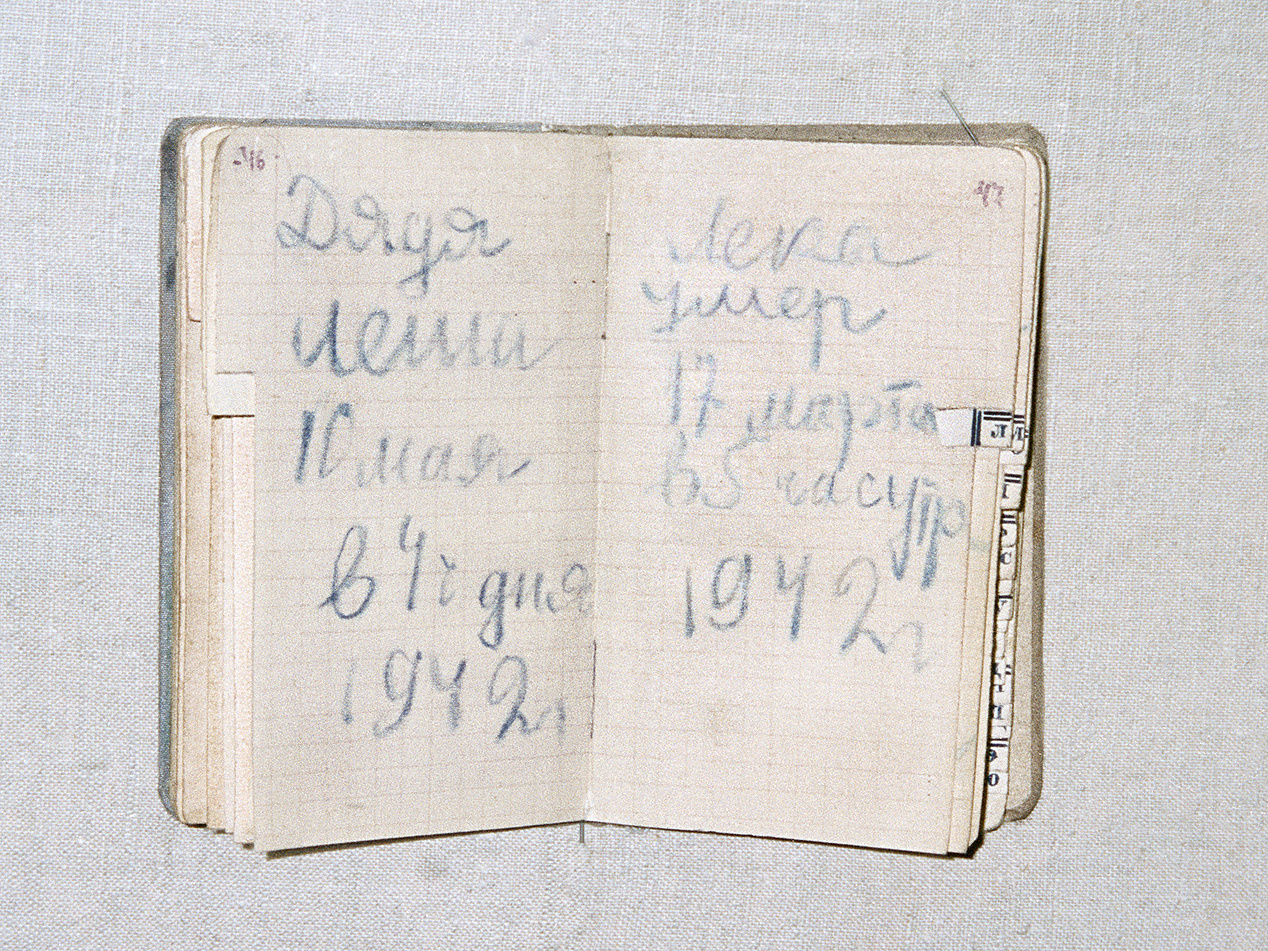 46
Дядя
Леша
10 мая
в 4 ч дня
1942 г
47
Лека
умер
17 марта
в 5 час утр
1942 г
Л